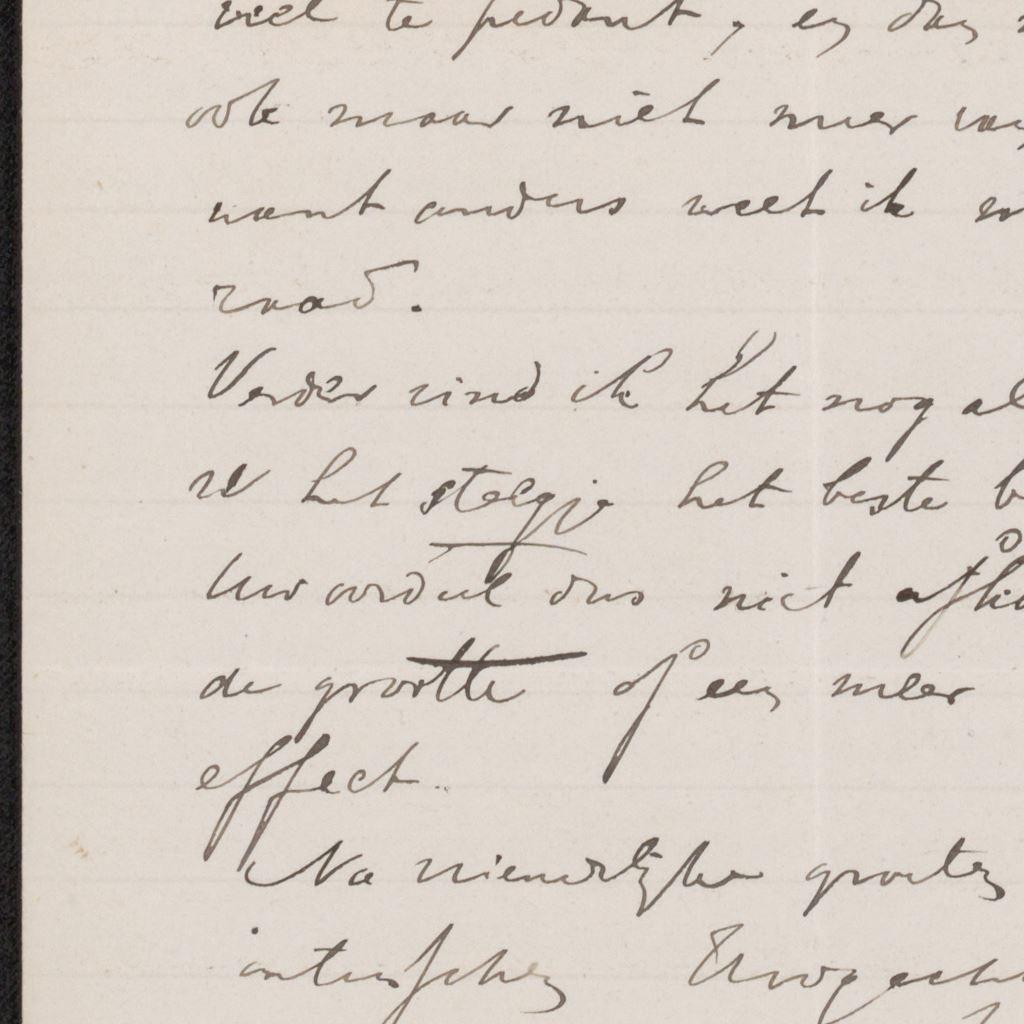 veel te pedant, en dan
ook maar niet meer
want anders weet ik
raad.
Verder vind ik het nog al
het steegje het beste
Uw oordeel dus niet
de grootte of een meer
effect.
Na vriendelijke groeten
intusschen Uwogech